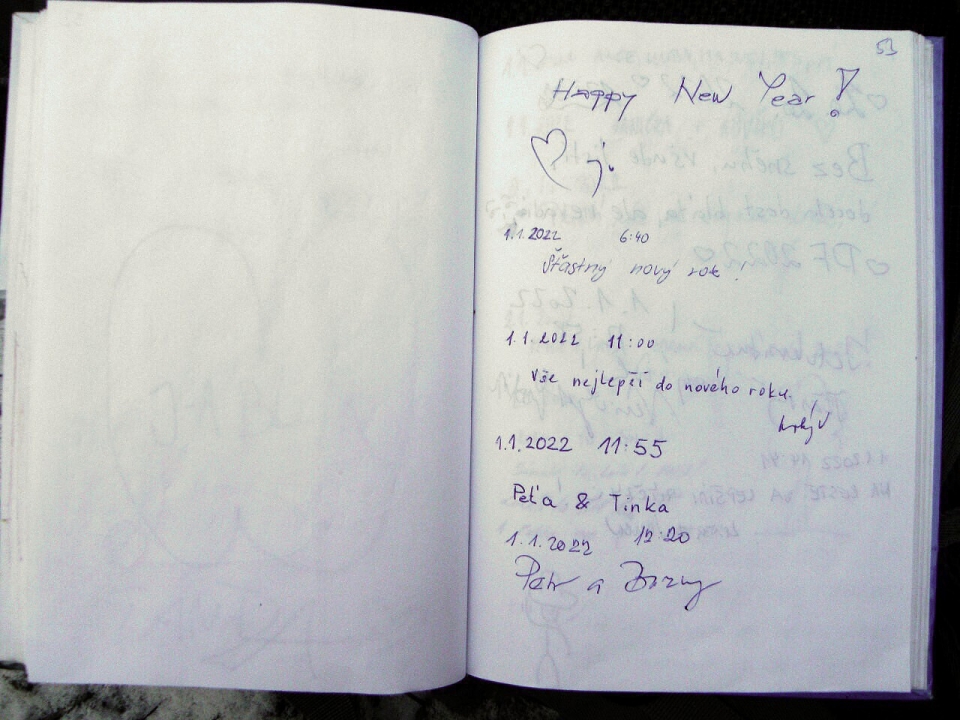 53
Happy New Year!
j.
1.1.2022 6:40
Šťastný nový rok!
1.1.2022 11:00
Vše nejlepší do nového roku.
1.1.2022 11:55
Peťa & Tinka
1.1.2022 12:20
Petr a